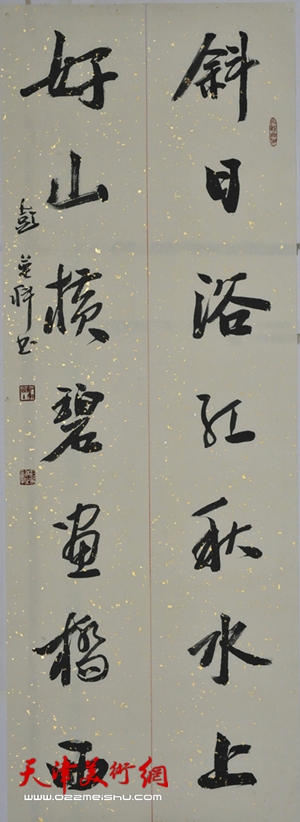 斜日浴红秋水上
好山横碧画橋西
彭英科书
天津美術網
www.022meishu.com